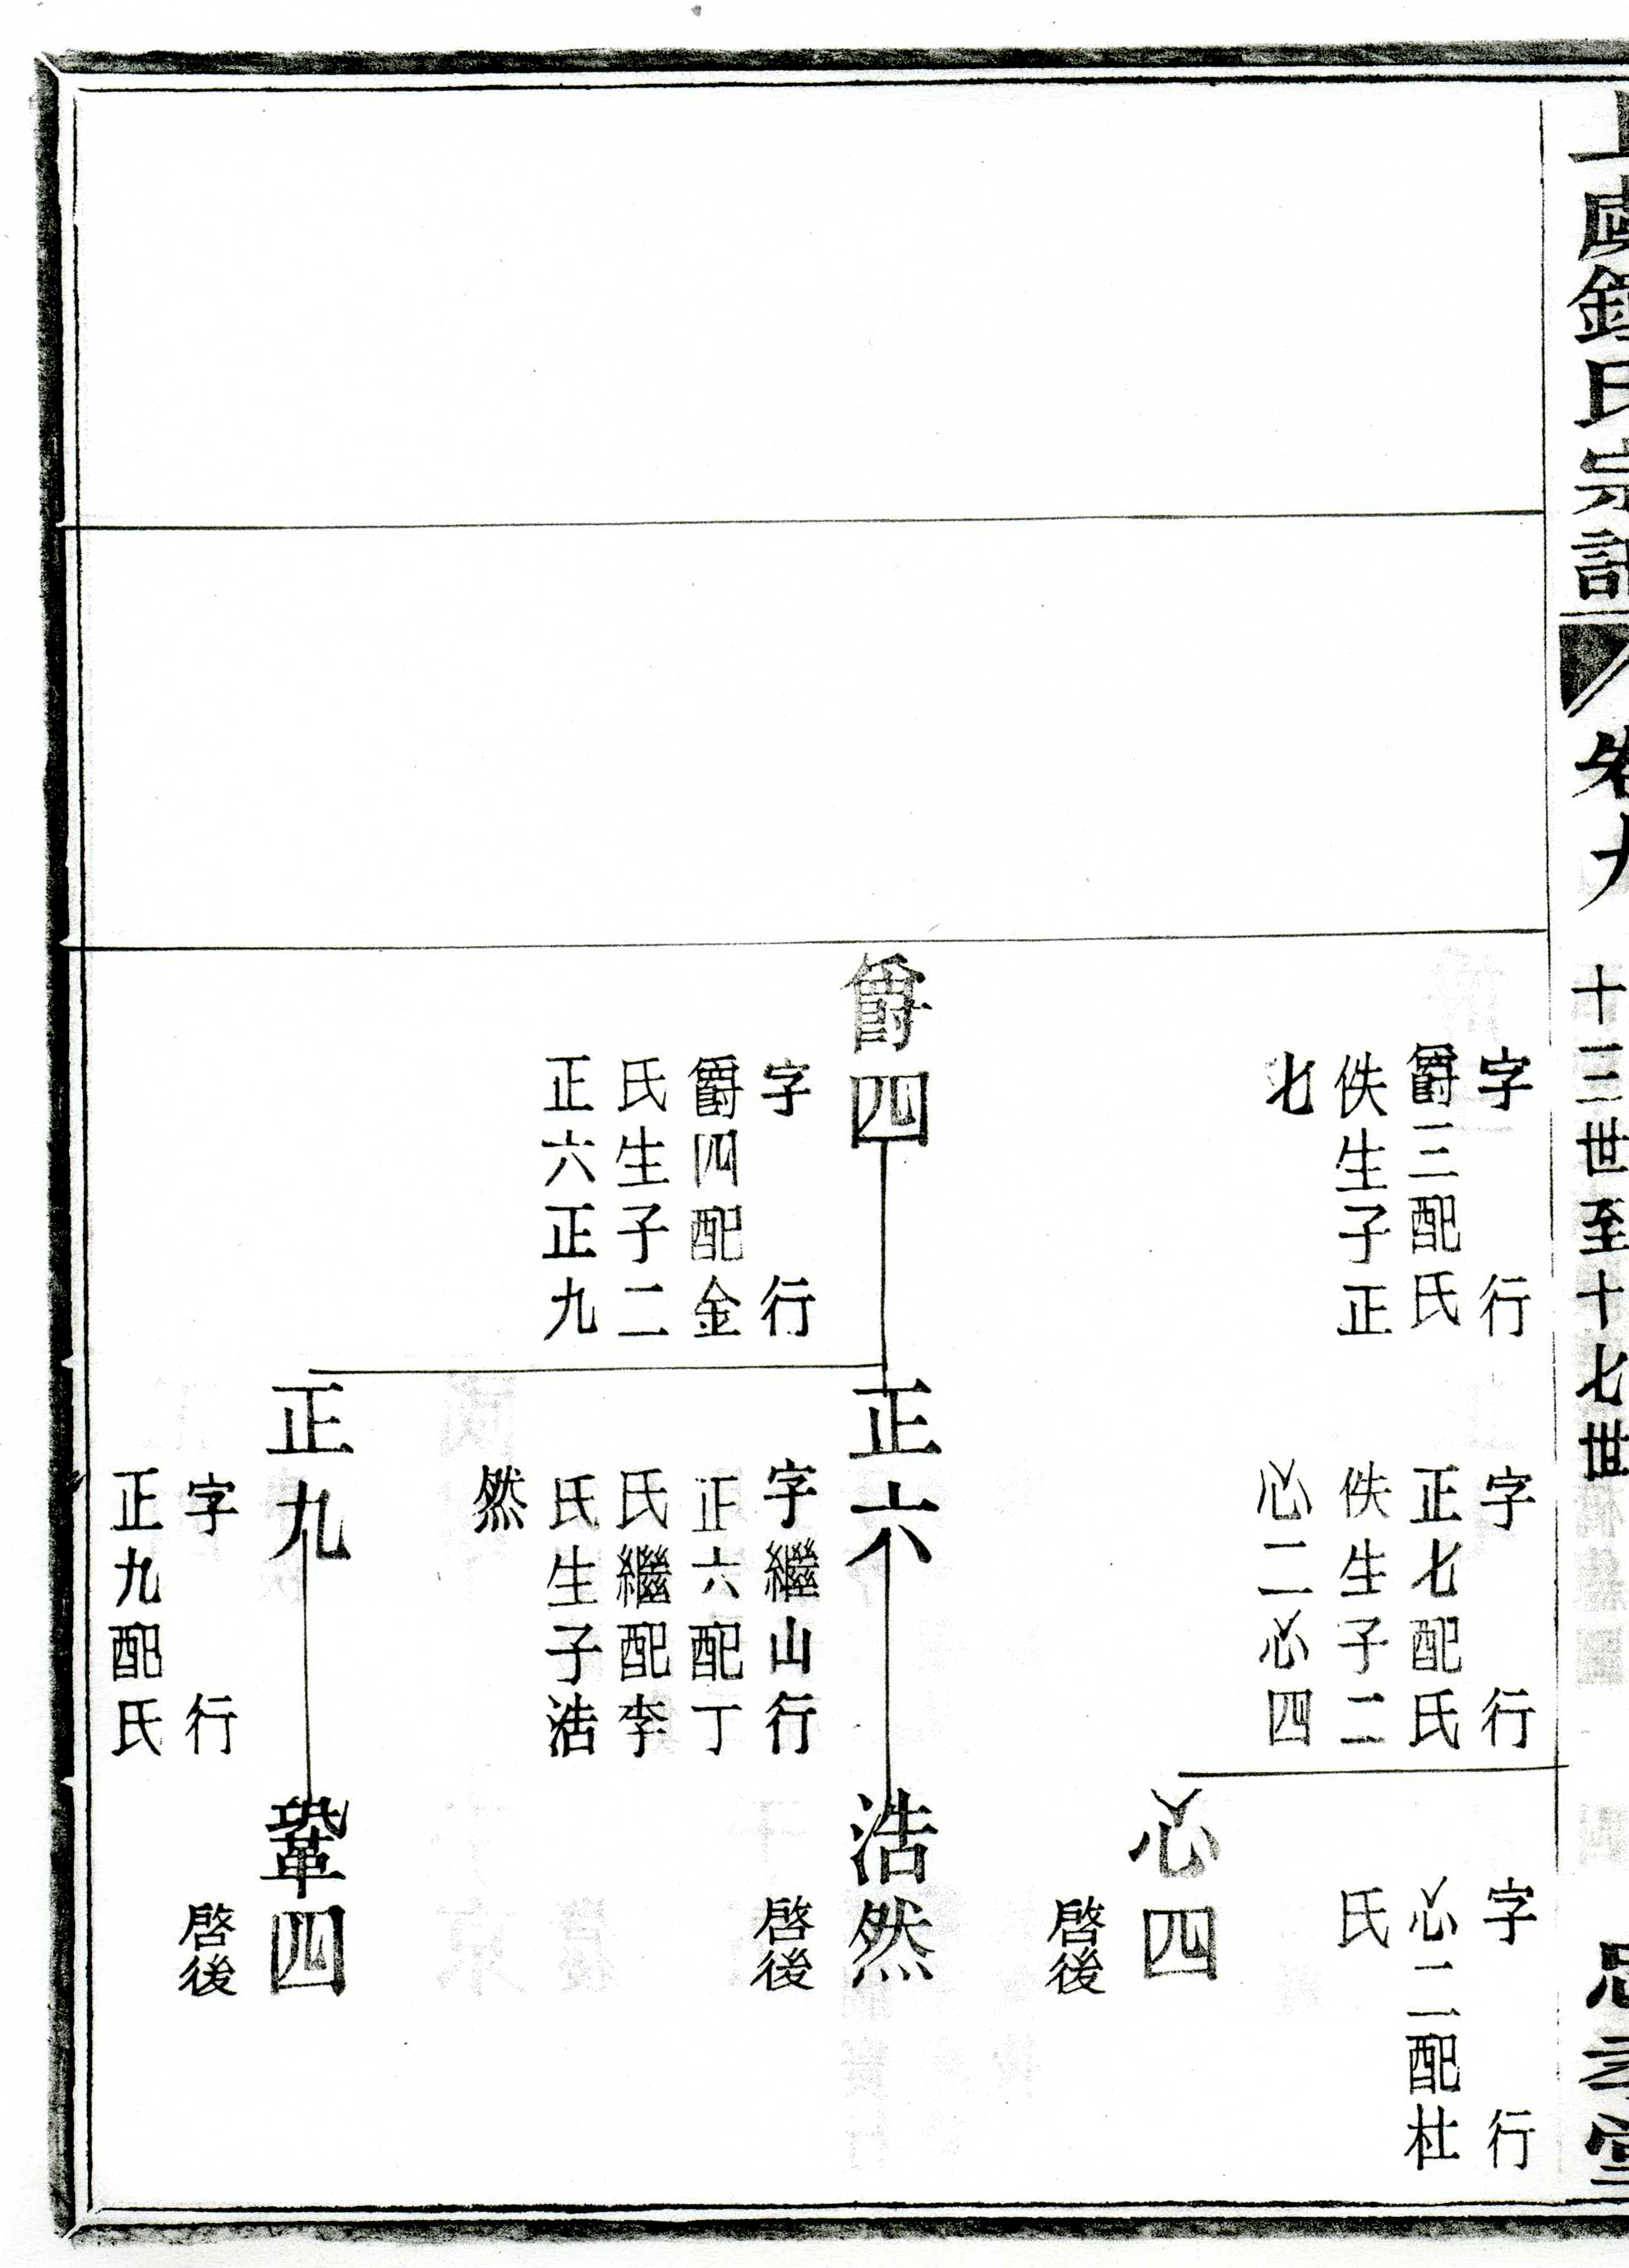 氏宗譜
卷九
十三世至十七世
忠孝堂
字 行
爵三配氏
佚生子正
七
爵四
字 行
爵四配金
氏生子二
正六正九
字 行
正七配氏
佚生子二
必二必四
正六
字繼山行
正六配丁
氏繼配李
氏生子浩
然
正九
字 行
正九配氏
字 行
必二配杜
氏
必四
啓後
浩然
啓後
鞏四
啓後